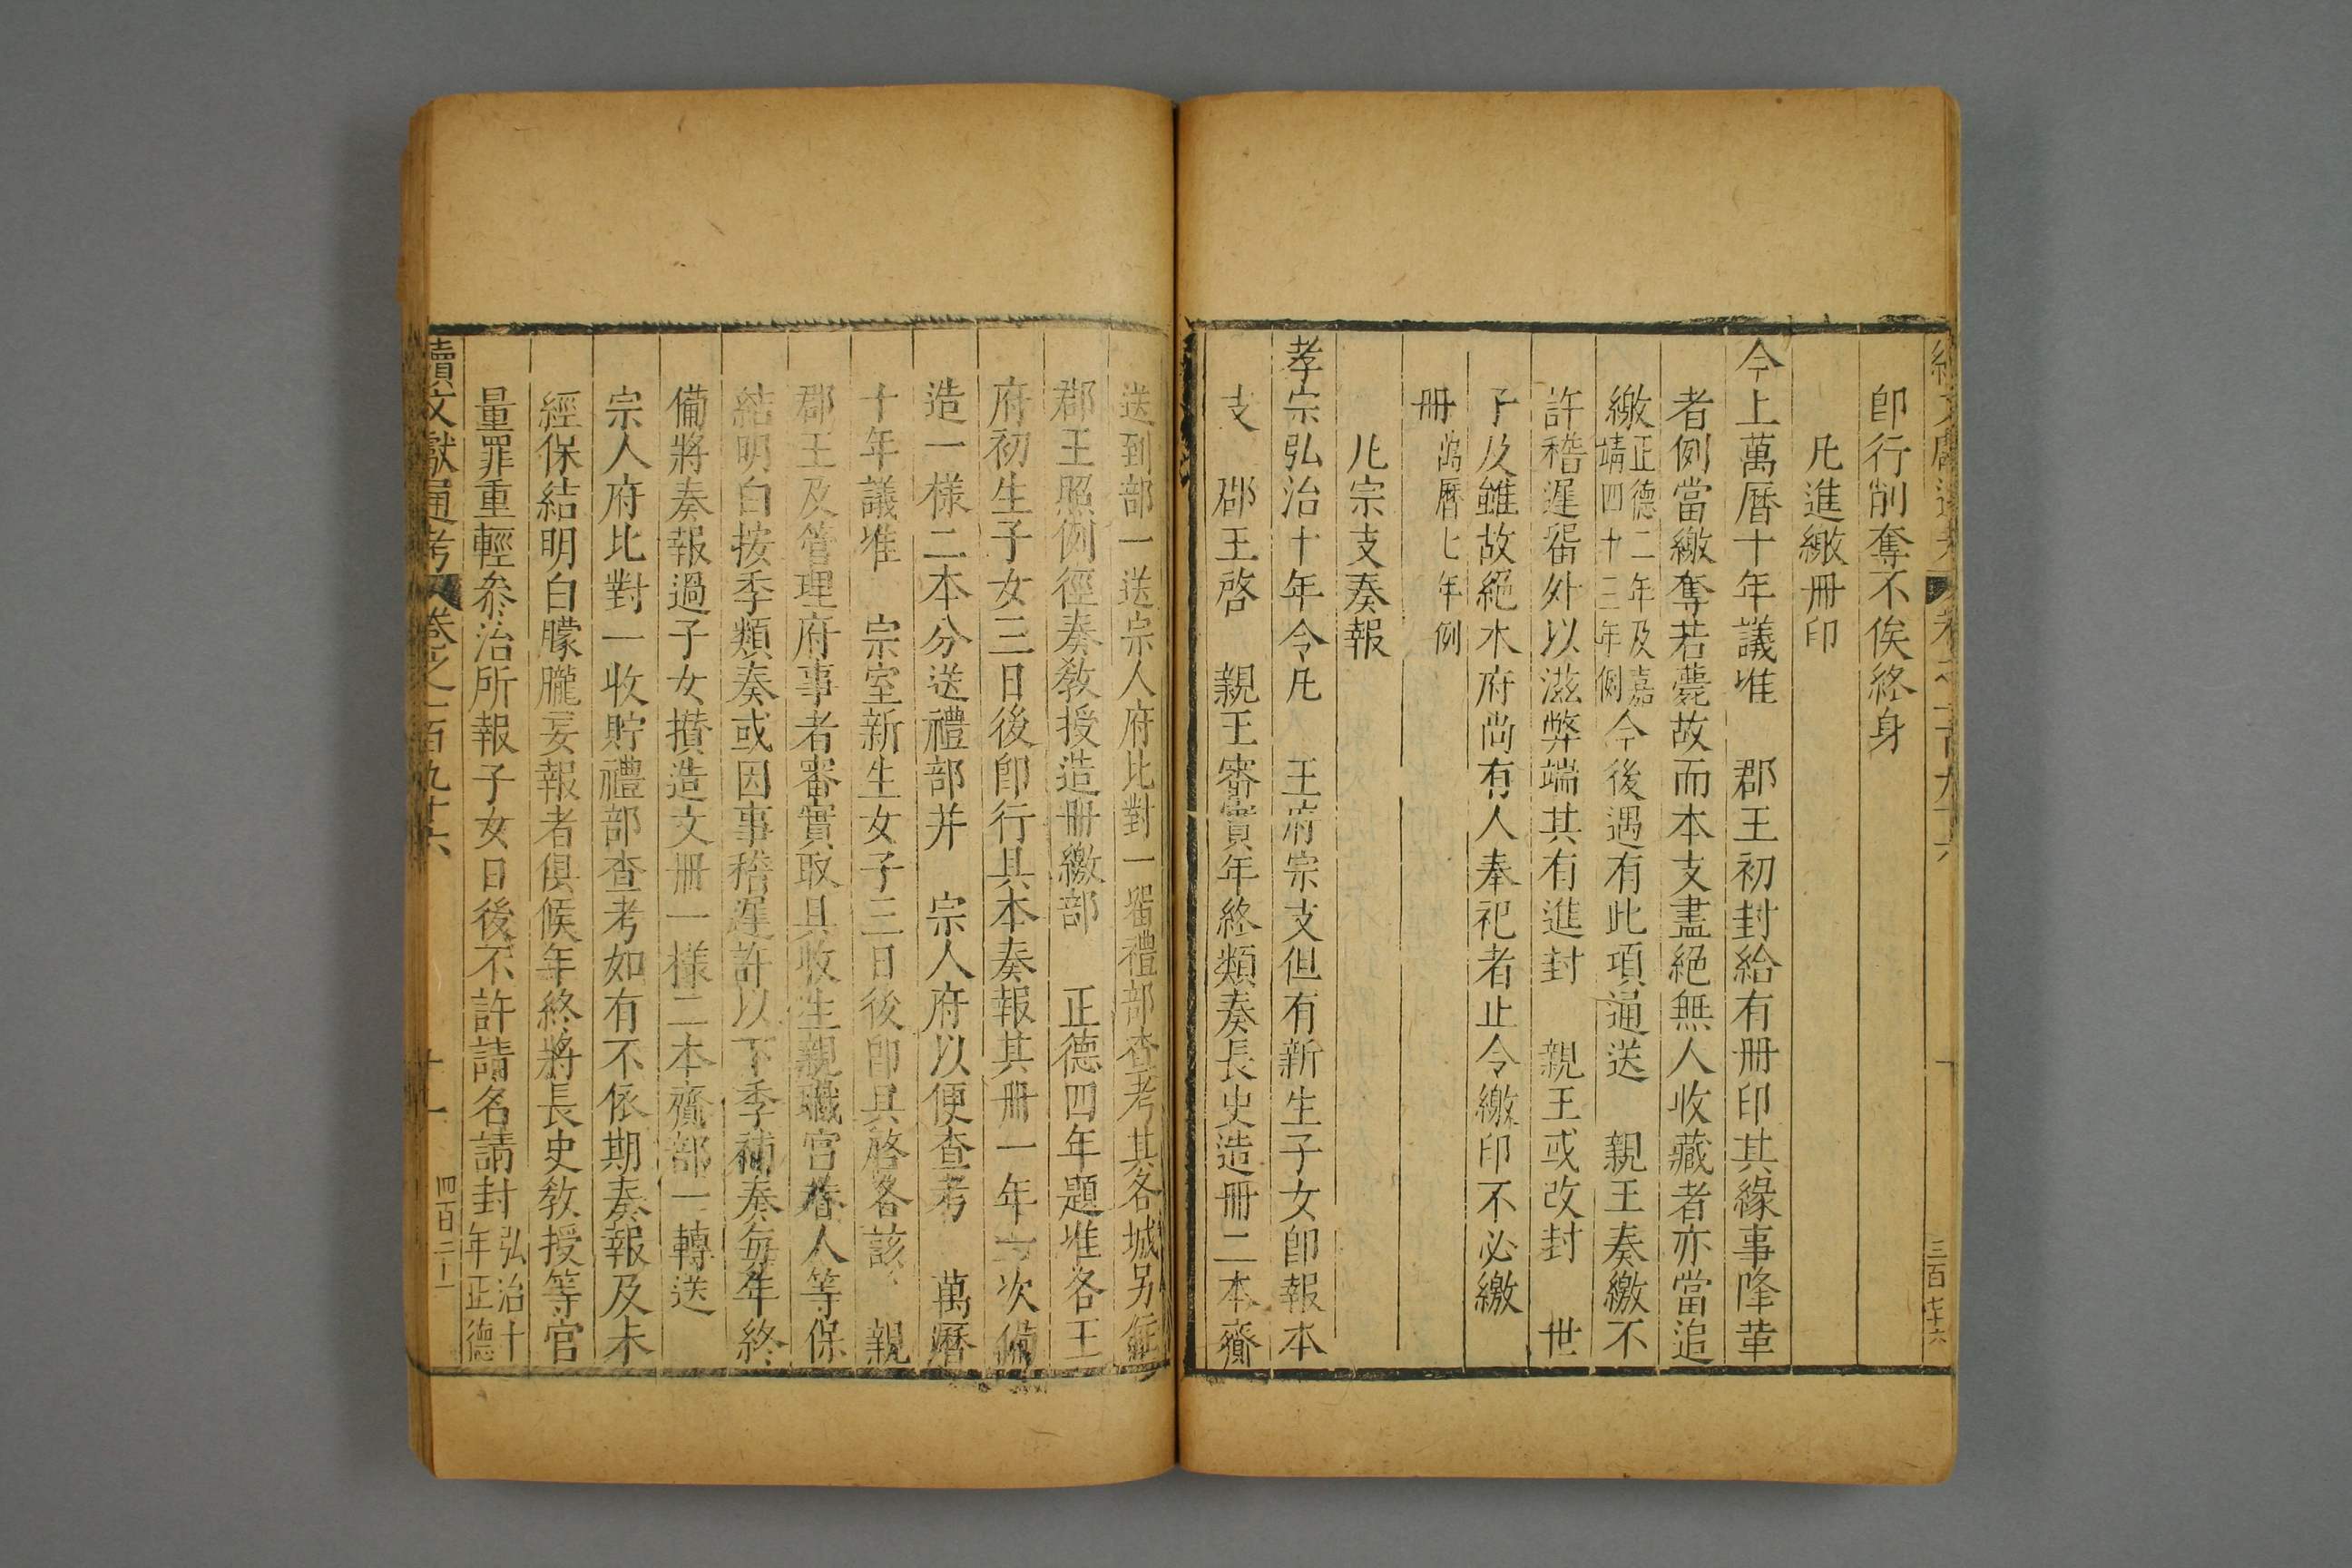 即行削奪不俟終身
凡進繳冊印
今上萬曆十年議准 郡王初封給有冊印其緣事降革
者例當繳奪若薨故而本支盡絕無人收藏者亦當追
繳正德二年及嘉靖四十三年例今後遇有此項通送 親王奏繳不
許稽遲畱外以滋弊端其有進封 親王或改封 世
子及雖故絕本府尚有人奉祀者止令繳印不必繳
冊萬曆七年例
凡宗支奏報
孝宗弘治十年令凡 王府宗支但有新生子女即報本
支 郡王啓 親王審實年終類奏長史造冊二本齎
送到部一送宗人府比對一畱禮部查考其各城另
郡王照例徑奏敎授造冊繳部 正德四年題准各王
府初生子女三日後即行具本奏報其冊一年一次備
造一樣二本分送禮部并 宗人府以便查考 萬曆
十年議准 宗室新生女子三日後即具啓各該 親
郡王及管理府事者審實取具收生親職宫眷人等保
結明白按季類奏或因事稽遲許以下季補奏每年終
備將奏報過子女攢造文冊一樣二本齎部一轉送
宗人府比對一收貯禮部查考如有不依期奏報及未
經保結明白朦朧妄報者俱候年終將長史敎授等官
量罪重輕叅治所報子女日後不許請名請封弘治十年正德
續文獻通考 卷之一百九十六 十一 四百二十一